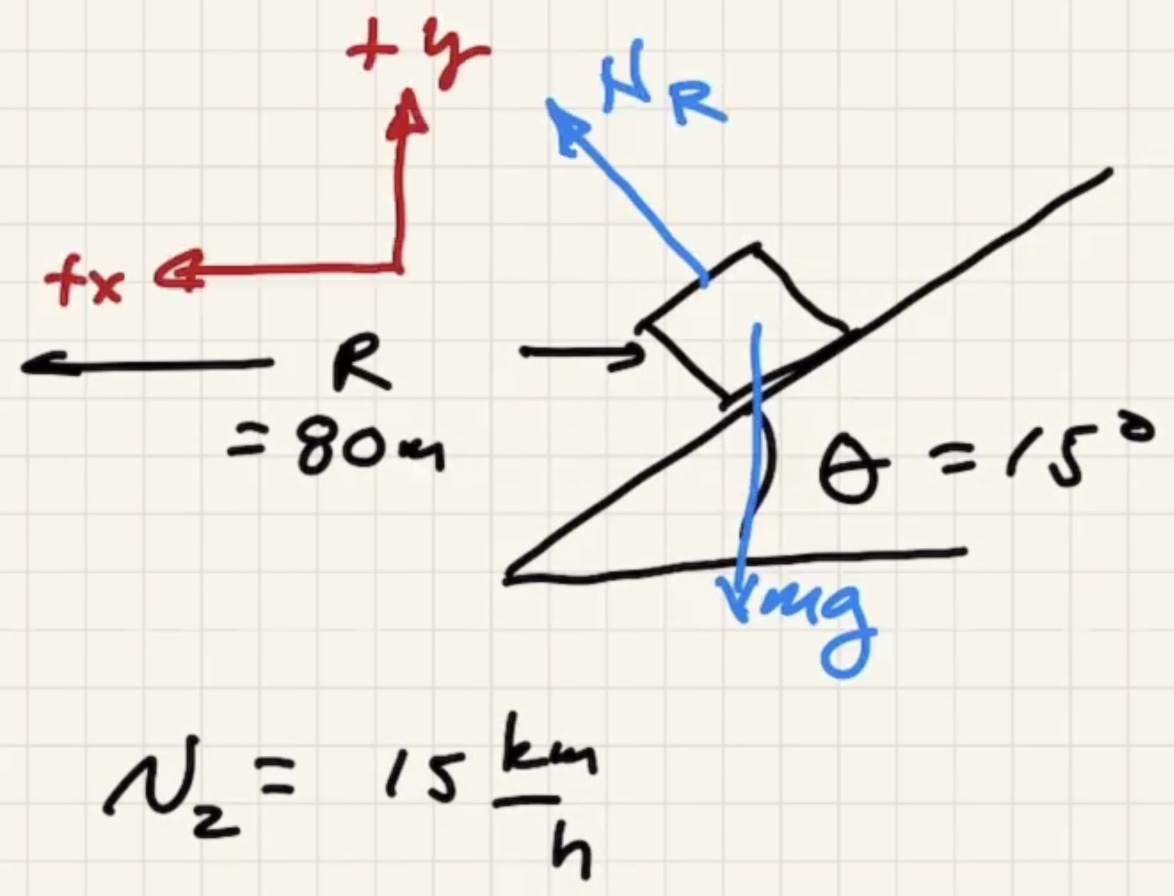 +y
N_R
+x
R
= 80m
θ = 15°
mg
v₂ = 15 km/h